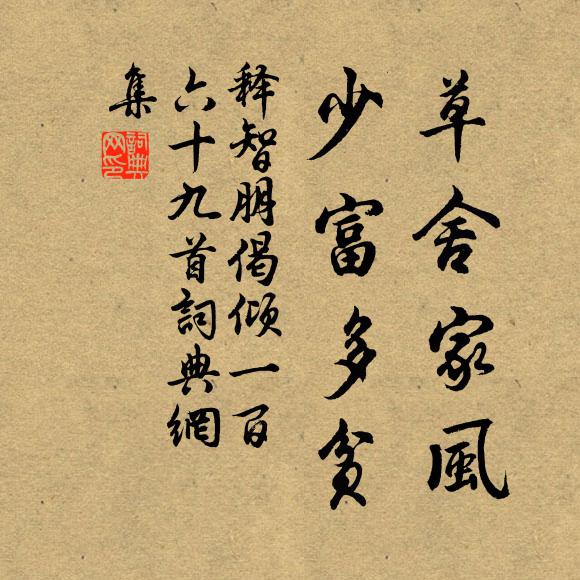 草舍家風
少富多貧
释智朋偈傾一百
六十九首詞典網
集
詞典
网印